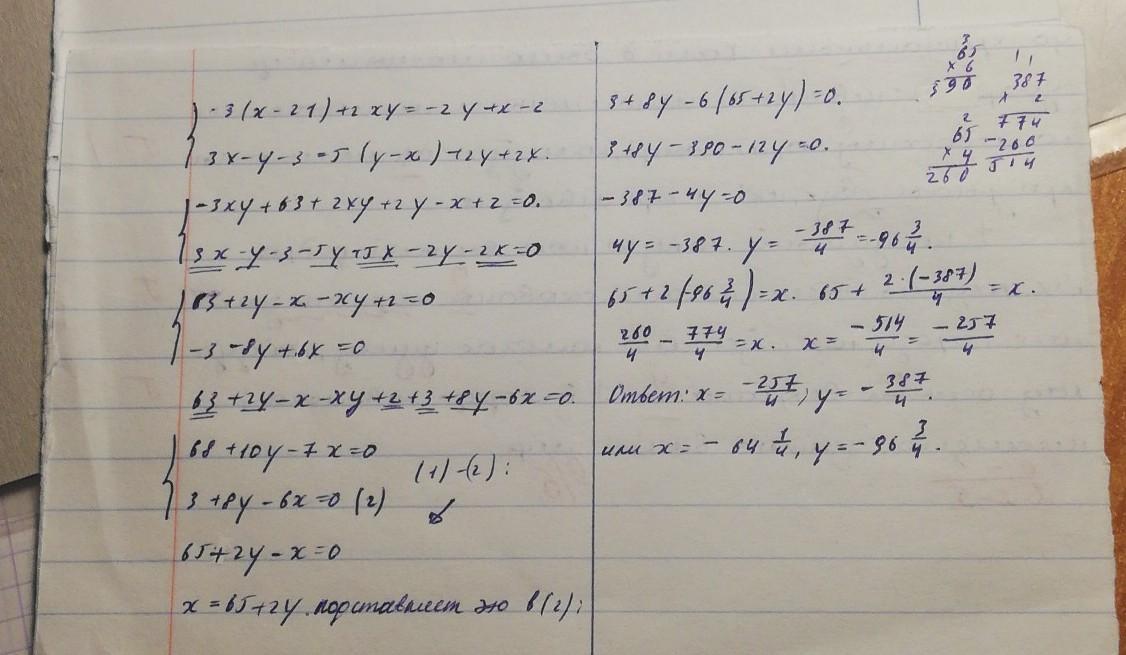 -3(x-21)+2xy=-2y+x-2
3x-y-3=5(y-x)+2y+2x.
-3xy+63+2xy+2y-x+2=0.
3x-y-3-5y+5x-2y-2x=0
63+2y-x-xy+2=0
-3-8y+6x=0
63+2y-x-xy+2+3+8y-6x=0.
68+10y-7x=0
(1)-(2):
3+8y-6x=0 (2)
65+2y-x=0
x=65+2y. подставляем это в (2):
3+8y-6(65+2y)=0.
3+8y-390-12y=0.
-387-4y=0
4y=-387. y=-387/4=-96 3/4.
65+2(-96 3/4)=x. 65+2·(-387)/4=x.
260/4-774/4=x. x=-514/4=-257/4
Ответ: x=-257/4; y=-387/4.
или x=-64 1/4, y=-96 3/4.
3
65
× 6
390
2
65
× 4
260
1 1
387
× 2
774
-260
514